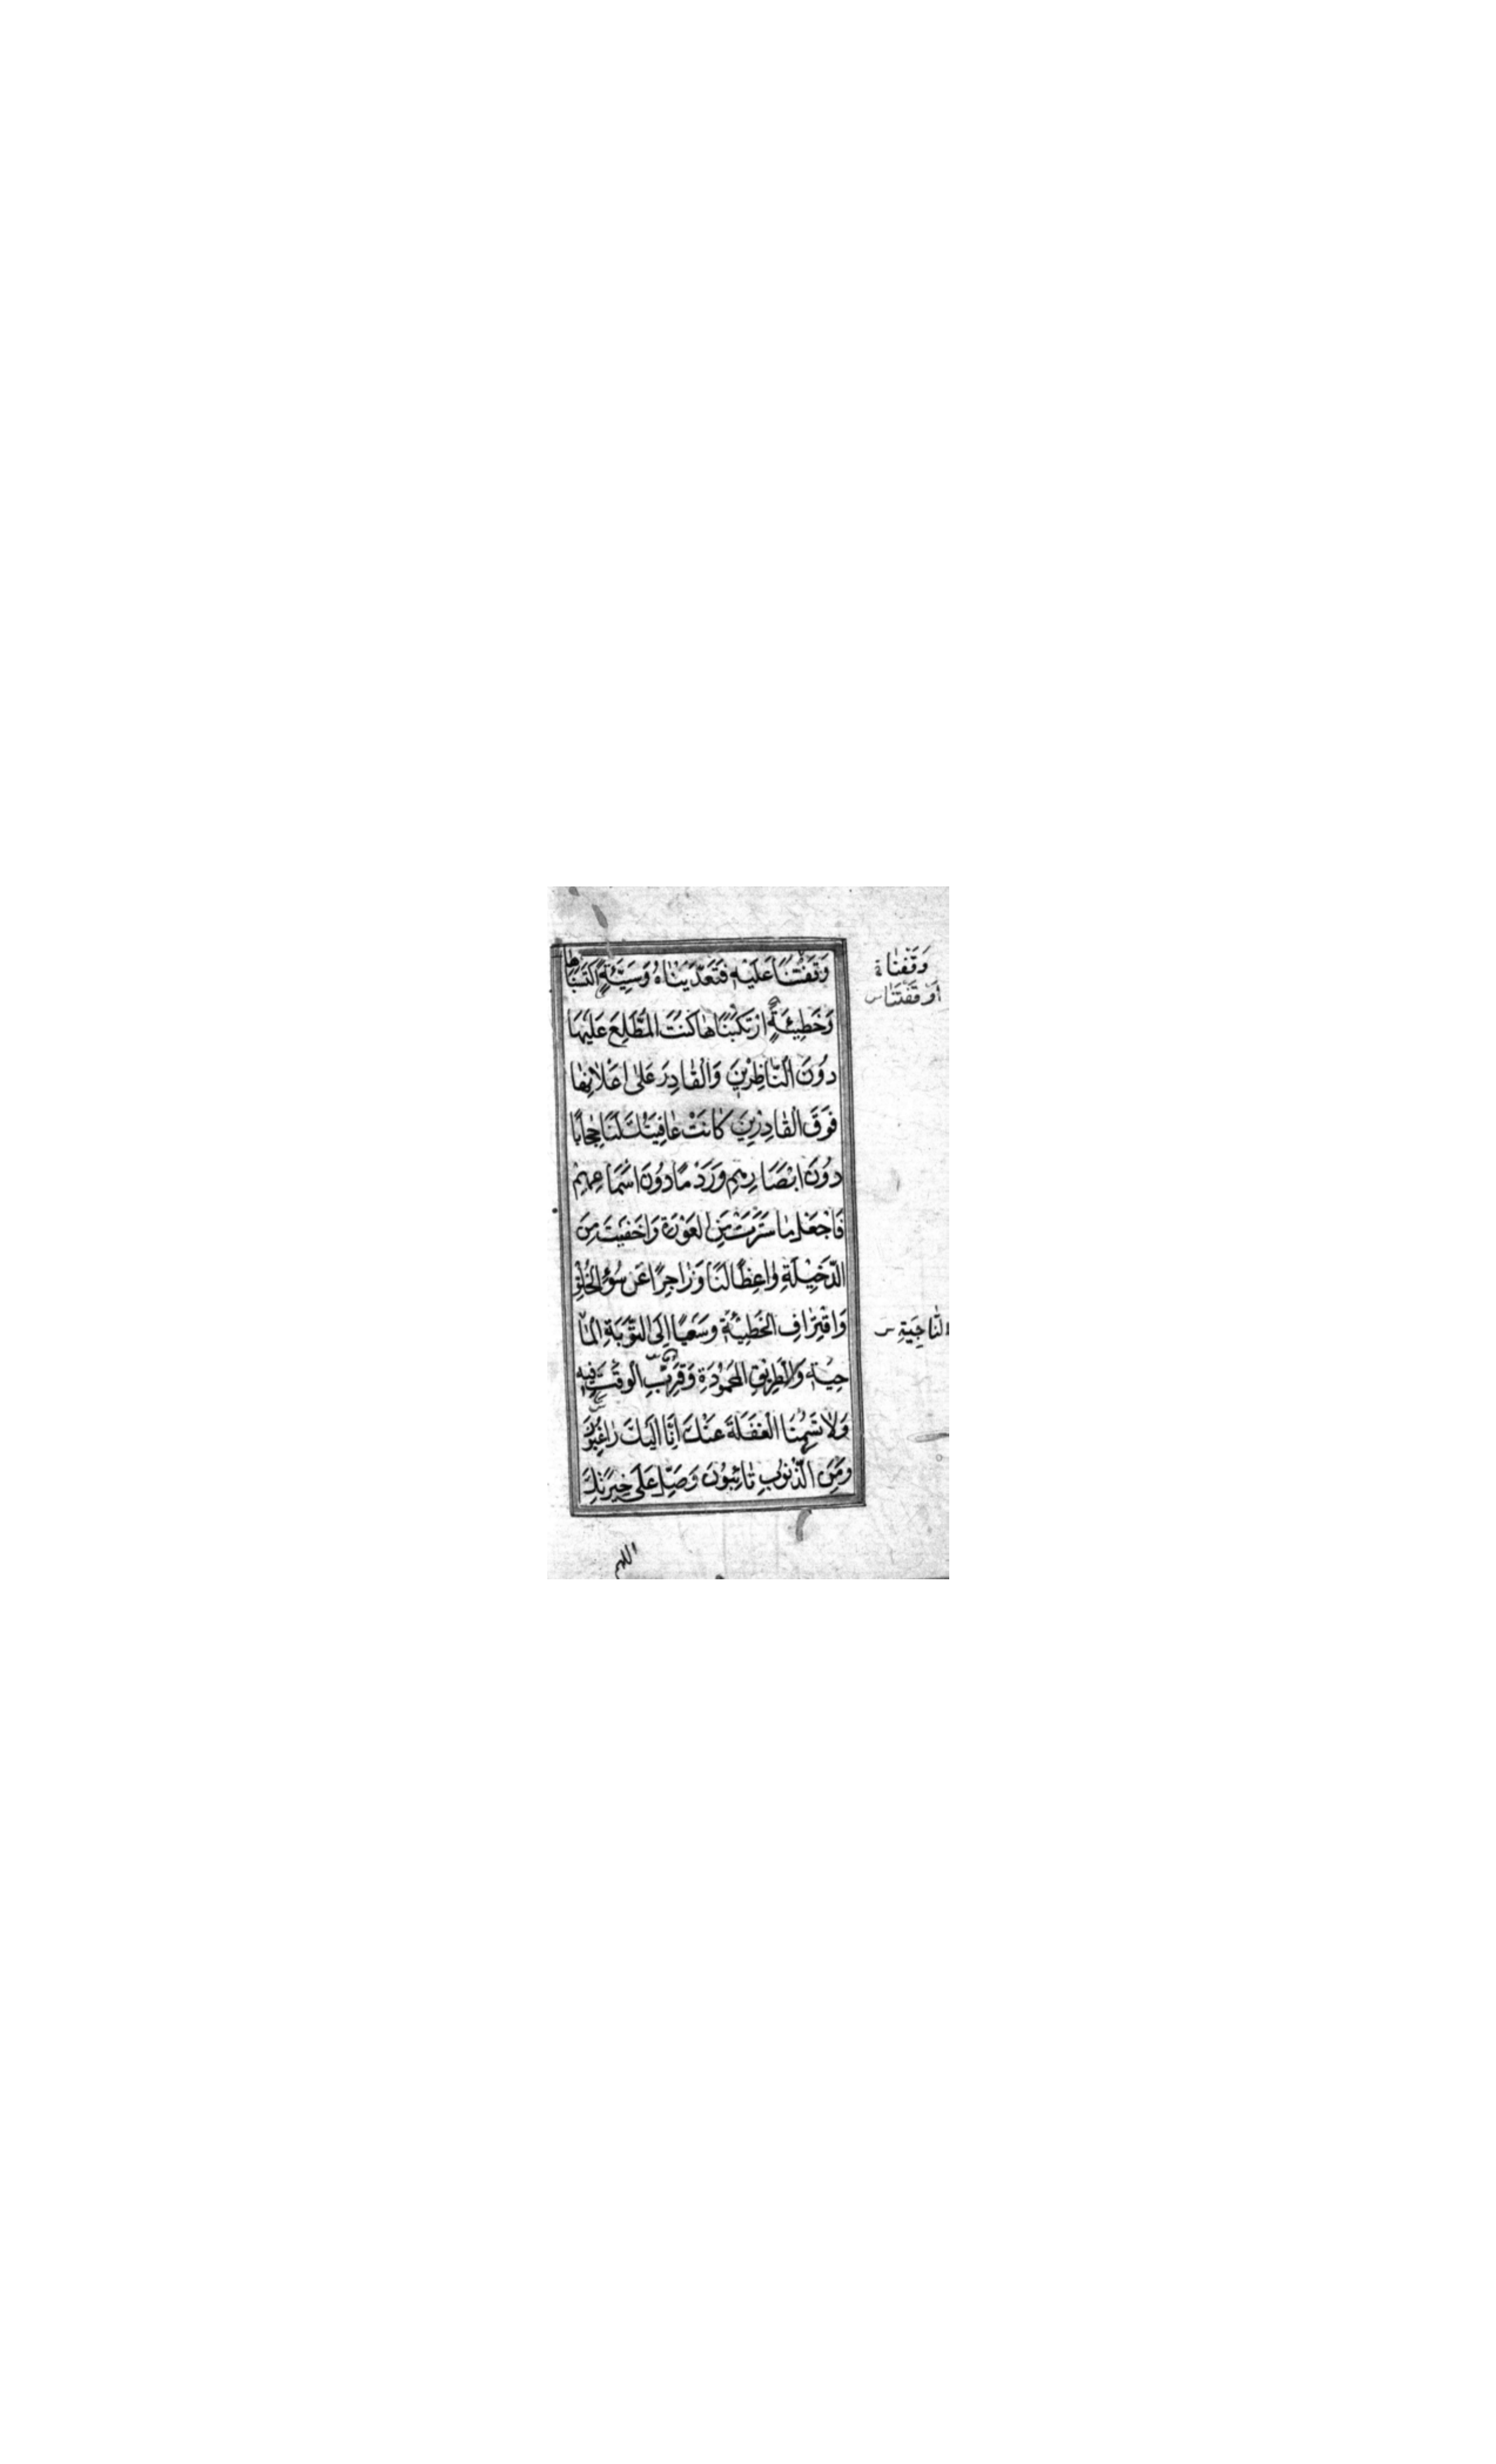 وَقَفْتَنَا عَلَيْهِ فَتَعَدَّيْنَاهُ وَسَيِّئَةٍ اكْتَسَبْنَاهَا
وَخَطِيئَةٍ ارْتَكَبْنَاهَا كُنْتَ الْمُطَّلِعَ عَلَيْهَا
دُونَ النَّاظِرِينَ وَالْقَادِرَ عَلَى اِعْلَانِهَا
فَوْقَ الْقَادِرِينَ كَانَتْ عَافِيَتُكَ لَنَا حِجَابًا
دُونَ اَبْصَارِهِمْ وَرَدْمًا دُونَ اَسْمَاعِهِمْ
فَاجْعَلْ مَا سَتَرْتَ مِنَ الْعَوْرَةِ وَاَخْفَيْتَ مِنَ
الدَّخِيلَةِ وَاعِظًا لَنَا وَزَاجِرًا عَنْ سُوءِ الْخُلُقِ
وَاقْتِرَافِ الْخَطِيئَةِ وَسَعْيًا اِلَى التَّوْبَةِ الْمَا
حِيَةِ وَالطَّرِيقِ الْمَحْمُودَةِ وَقَرِّبِ الْوَقْتَ فِيهِ
وَلَا تَسُمْنَا الْغَفْلَةَ عَنْكَ اِنَّا اِلَيْكَ رَاغِبُونَ
وَمِنَ الذُّنُوبِ تَائِبُونَ وَصَلِّ عَلَى خِيَرَتِكَ
اللهم
وَقَفْنَاهُ
اَوْقَفْتَنَا س
النَّاجِيَةِ س